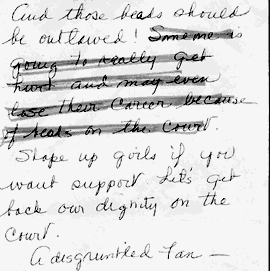 And those beads should
be outlawed! Someone is
going to really get
hurt and may even
lose their career because
of beads on the court.
Shape up girls if you
want support. Let's get
back our dignity on the
court.
A disgruntled fan —